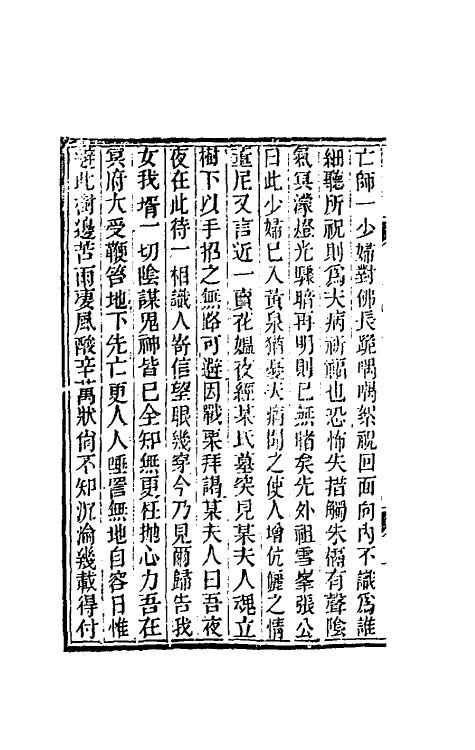 亡師一少婦對佛長跪喁喁絮祝回面向內不識爲誰
細聽所祝則爲夫病祈福也恐怖失措觸朱槅有聲陰
氣冥濛燈光驟暗再明則已無睹矣先外祖雪峯張公
曰此少婦已入黃泉猶憂夫病聞之使人增伉儷之情
董尼又言近一賣花媼夜經某氏墓突見某夫人魂立
樹下以手招之無路可避因戰栗拜謁某夫人曰吾夜
夜在此待一相識人寄信望眼幾穿今乃見爾歸告我
女我壻一切陰謀鬼神皆已全知無更枉拋心力吾在
冥府大受鞭笞地下先亡更人人唾詈無地自容日惟
避此樹邊苦雨凄風酸辛萬狀尙不知沉淪幾載得付